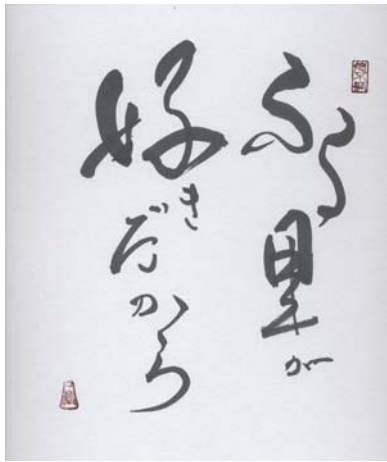 ふる里が
好きだから